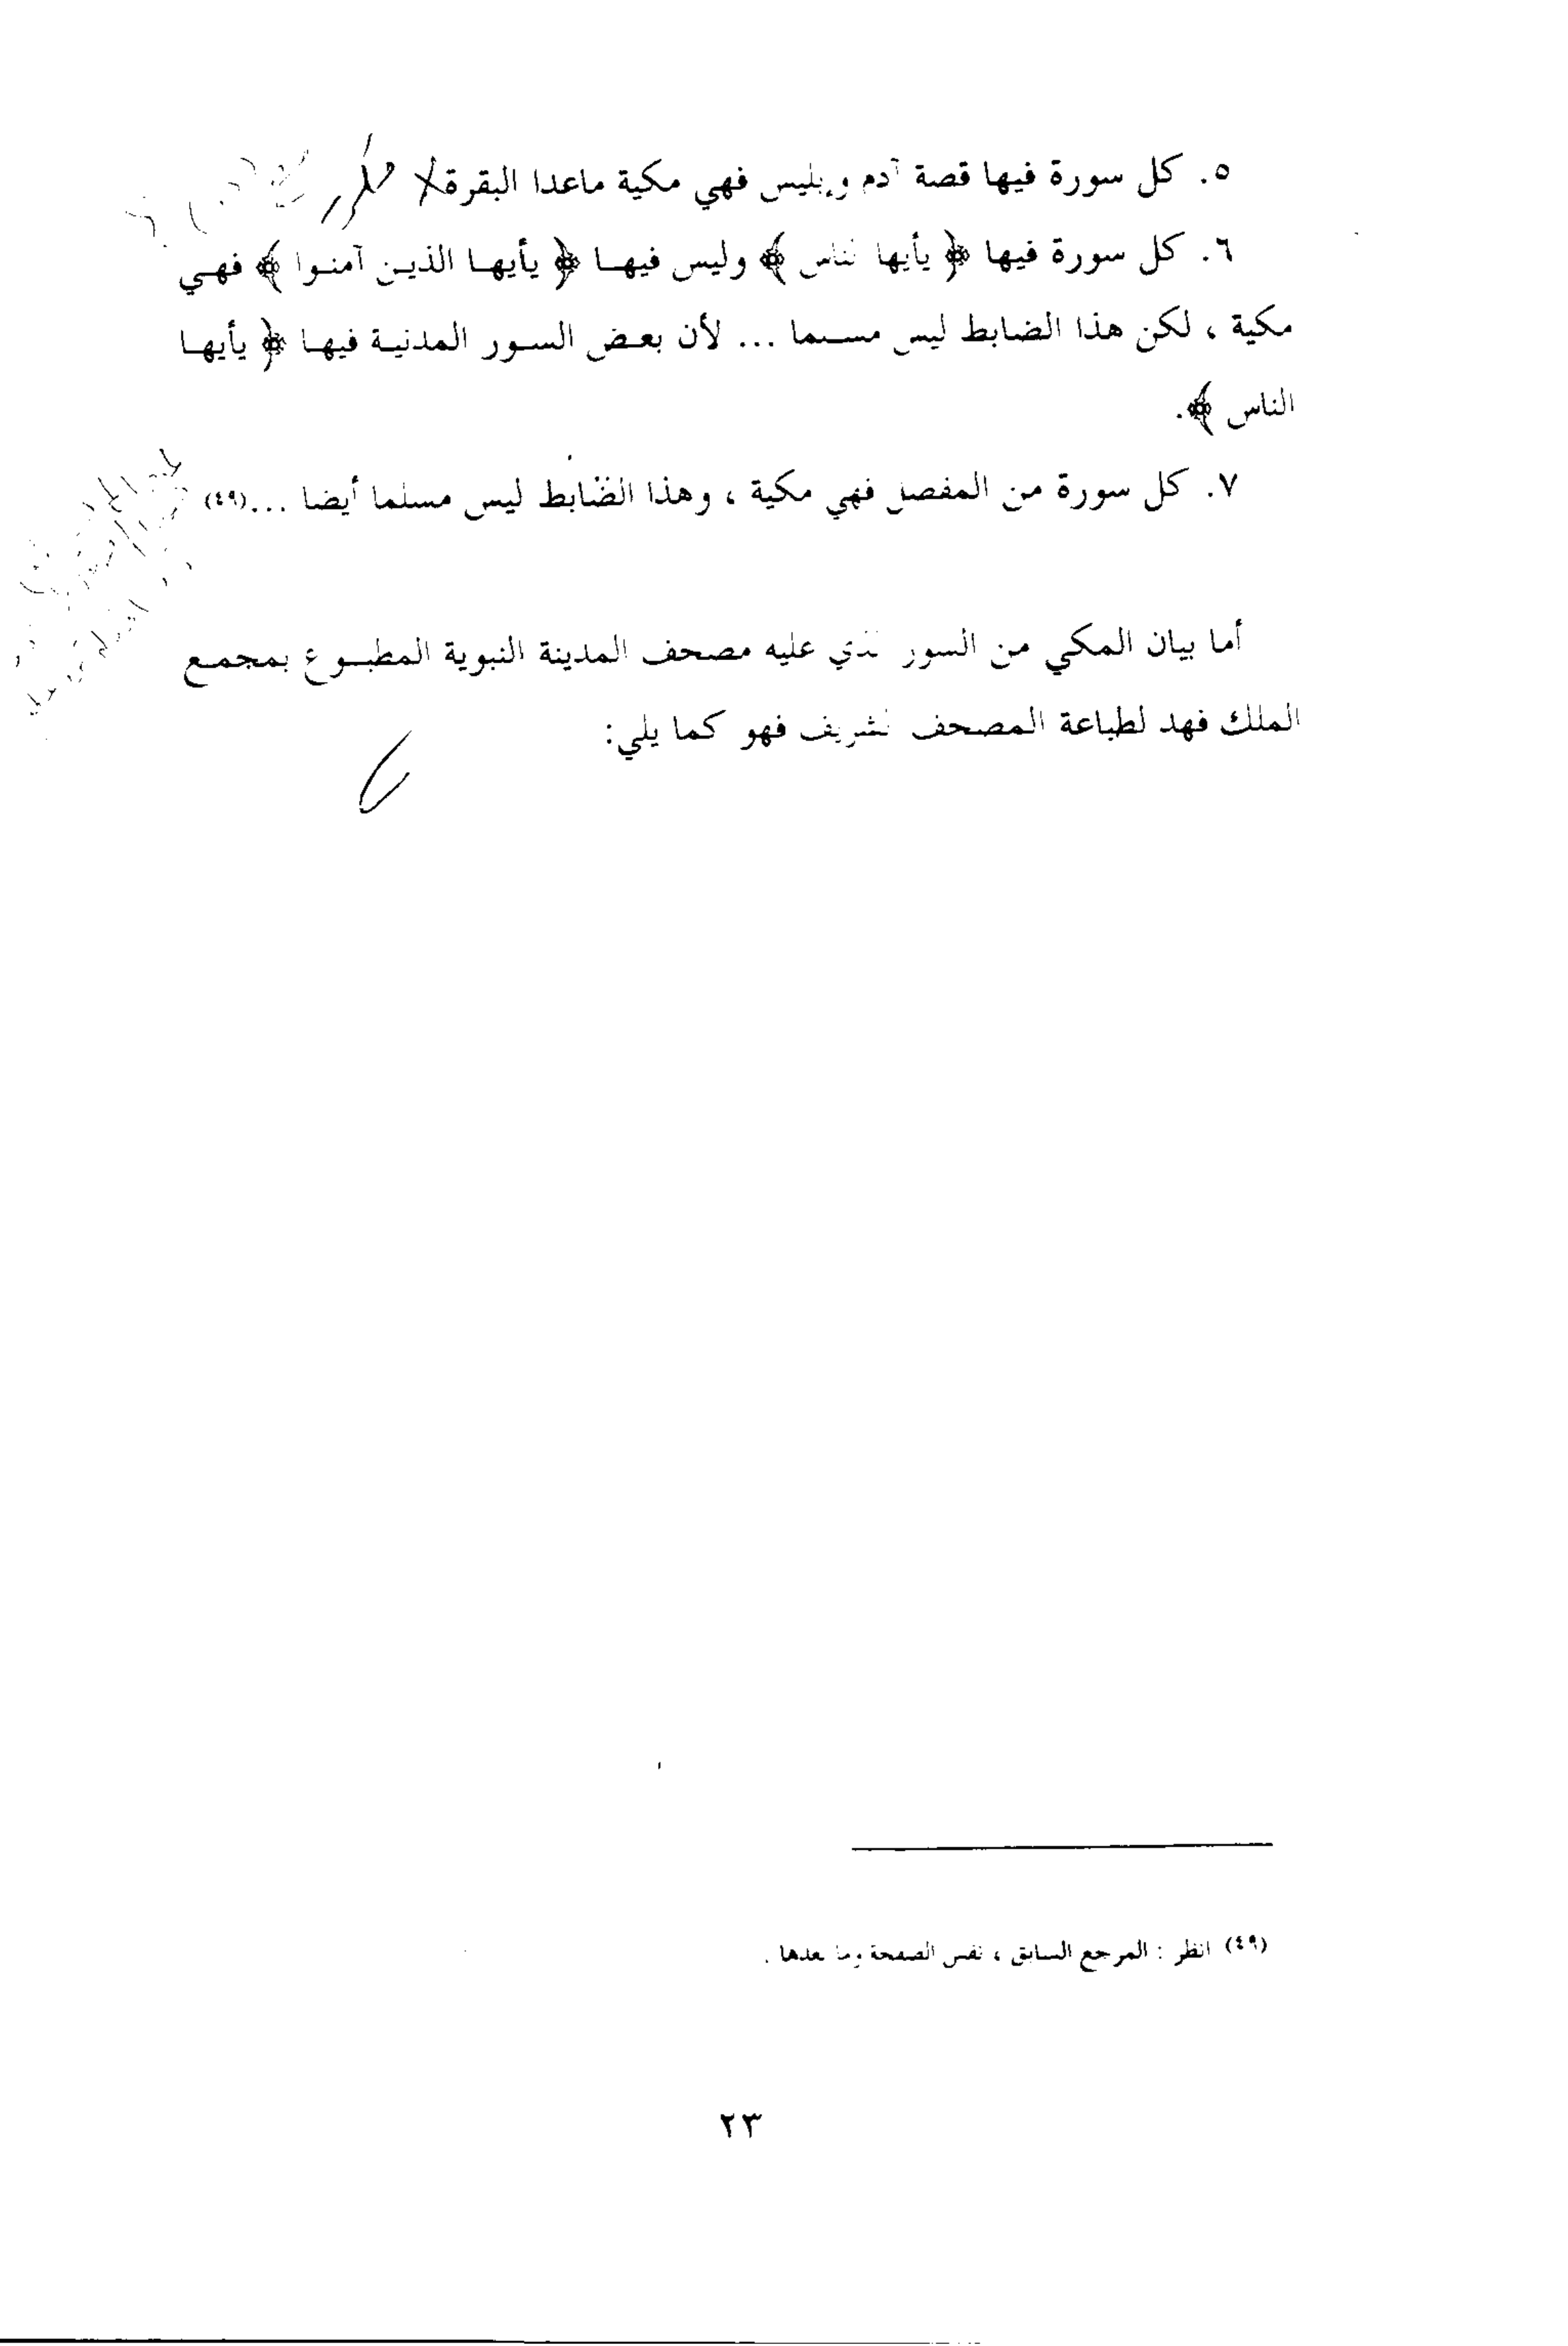 ٥. كل سورة فيها قصة آدم وإبليس فهي مكية ماعدا البقرة
٦. كل سورة فيها ﴿ يأيها الناس ﴾ وليس فيها ﴿ يأيها الذين آمنوا ﴾ فهي
مكية ، لكن هذا الضابط ليس مسلما ... لأن بعض السور المدنية فيها ﴿ يأيها
الناس ﴾.
٧. كل سورة من المفصل فهي مكية ، وهذا الضابط ليس مسلما أيضا ...(٤٩)
أما بيان المكي من السور الذي عليه مصحف المدينة النبوية المطبوع بمجمع
الملك فهد لطباعة المصحف الشريف فهو كما يلي:
(٤٩) انظر : المرجع السابق ، نفس الصفحة وما بعدها .
٢٣